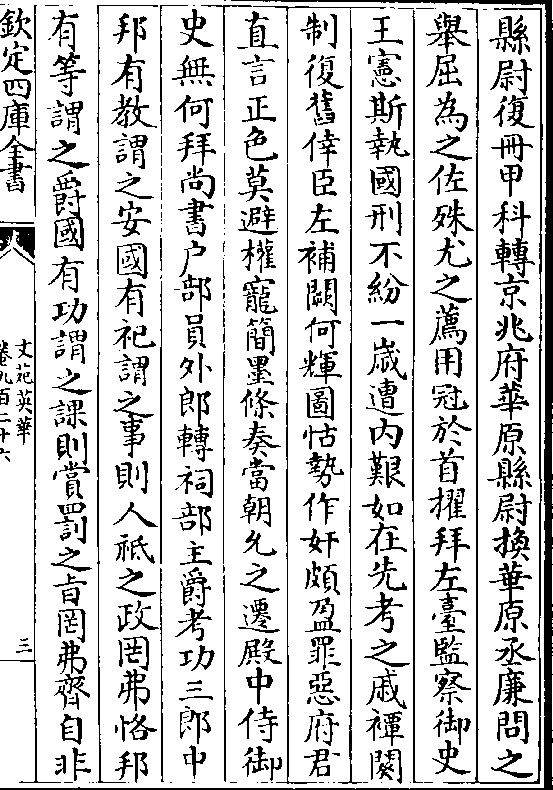 縣尉復冊甲科轉京兆府華原縣尉換華原丞廉問之
舉屈為之佐殊尤之薦用冠於首擢拜左臺監察御史
王憲斯執國刑不紛一嵗遭内艱如在先考之戚禫闋
制復舊倖臣左補闕何輝圖怙勢作奸頗盈罪惡府君
直言正色莫避權寵簡墨條奏當朝允之遷殿中侍御
史無何拜尚書户部員外郎轉祠部主爵考功三郎中
邦有教謂之安國有祀謂之事則人祇之政罔弗恪邦
有等謂之爵國有功謂之課則賞罰之㫖罔弗齊自非
欽定四庫全書
文苑英華
卷九百二十六
三